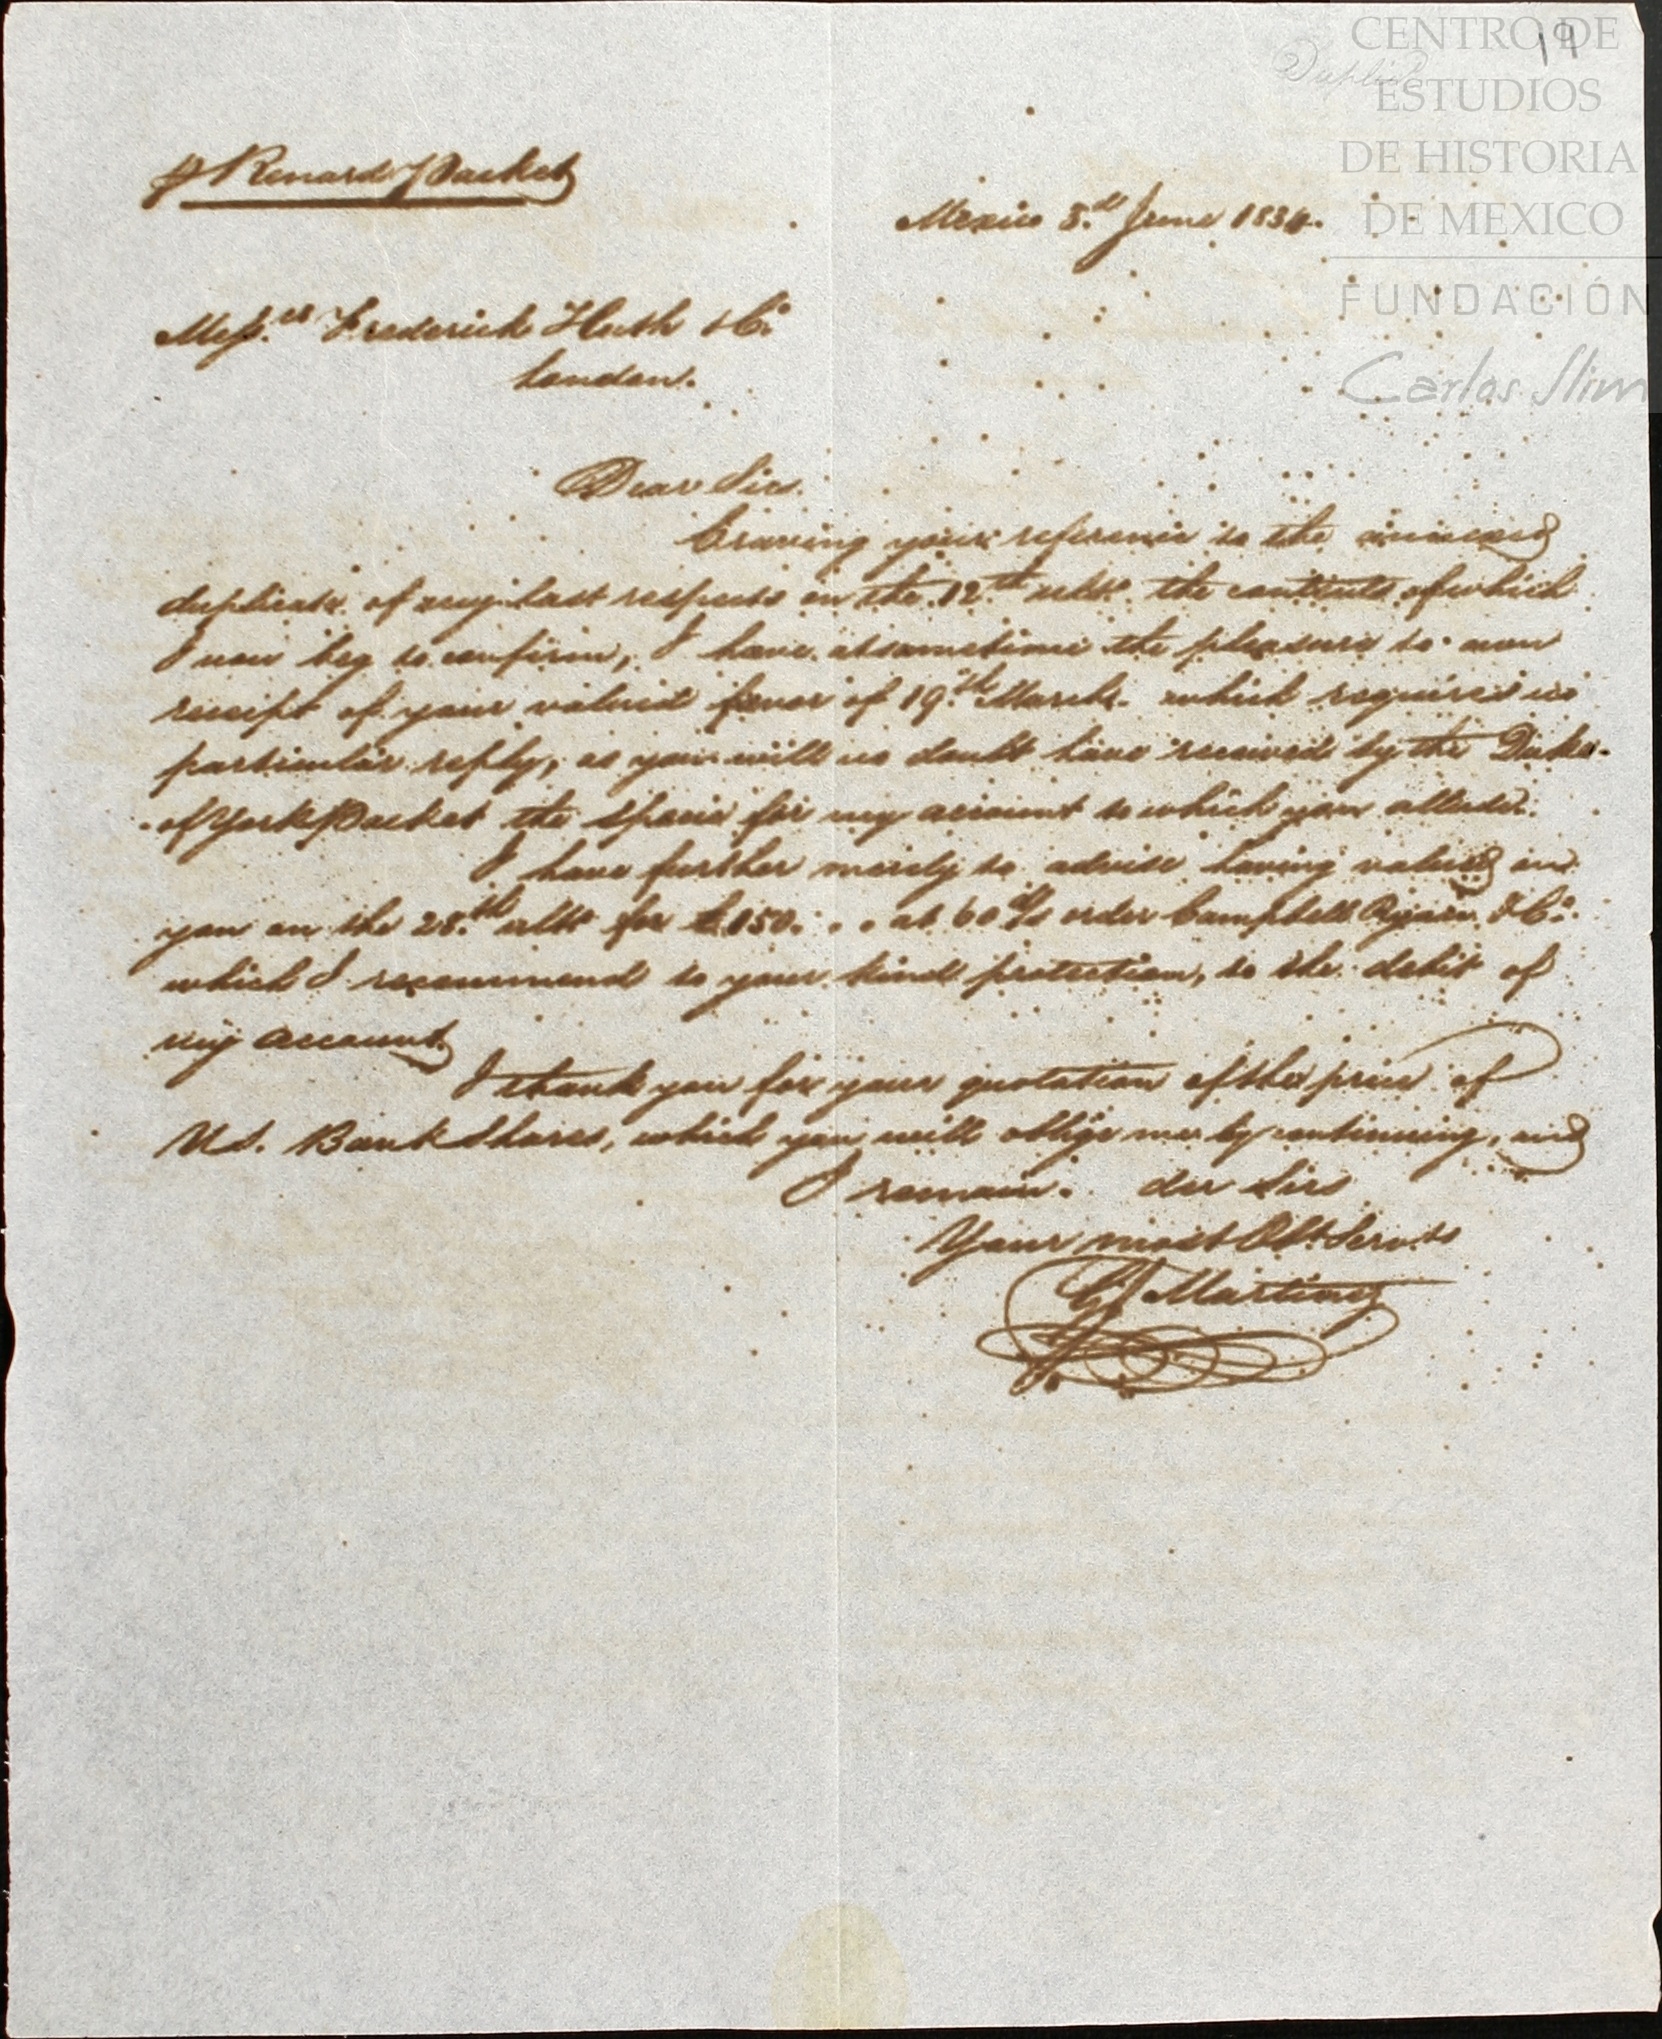 19
Duplicate
CENTRO DE
ESTUDIOS
DE HISTORIA
DE MEXICO
FUNDACIÓN
Carlos Slim
p Renard Packet
Mexico 3.d June 1834.
Mess.rs Frederick Huth & Co.
London.
Dear Sirs.
Craving your reference to the annexed
duplicate of my last respects on the 12.th ulto. the contents of which
I now beg to confirm, I have at sametime the pleasure to own
receipt of your valued favor of 19.th March. which requires no
particular reply, as you will no doubt have received by the Duke
of York Packet the specie for my account to which you allude.
I have further merely to advise having valued on
you on the 28.th ulto for £150. . . at 60 d/s order Campbell Ryan & Co.
which I recommend to your kind protection, to the debit of
my account.
I thank you for your quotation of the price of
U.S. Bank Shares, which you will oblige me by continuing, and
I remain. dear Sirs
Your most Obt. Servt.
Martinez